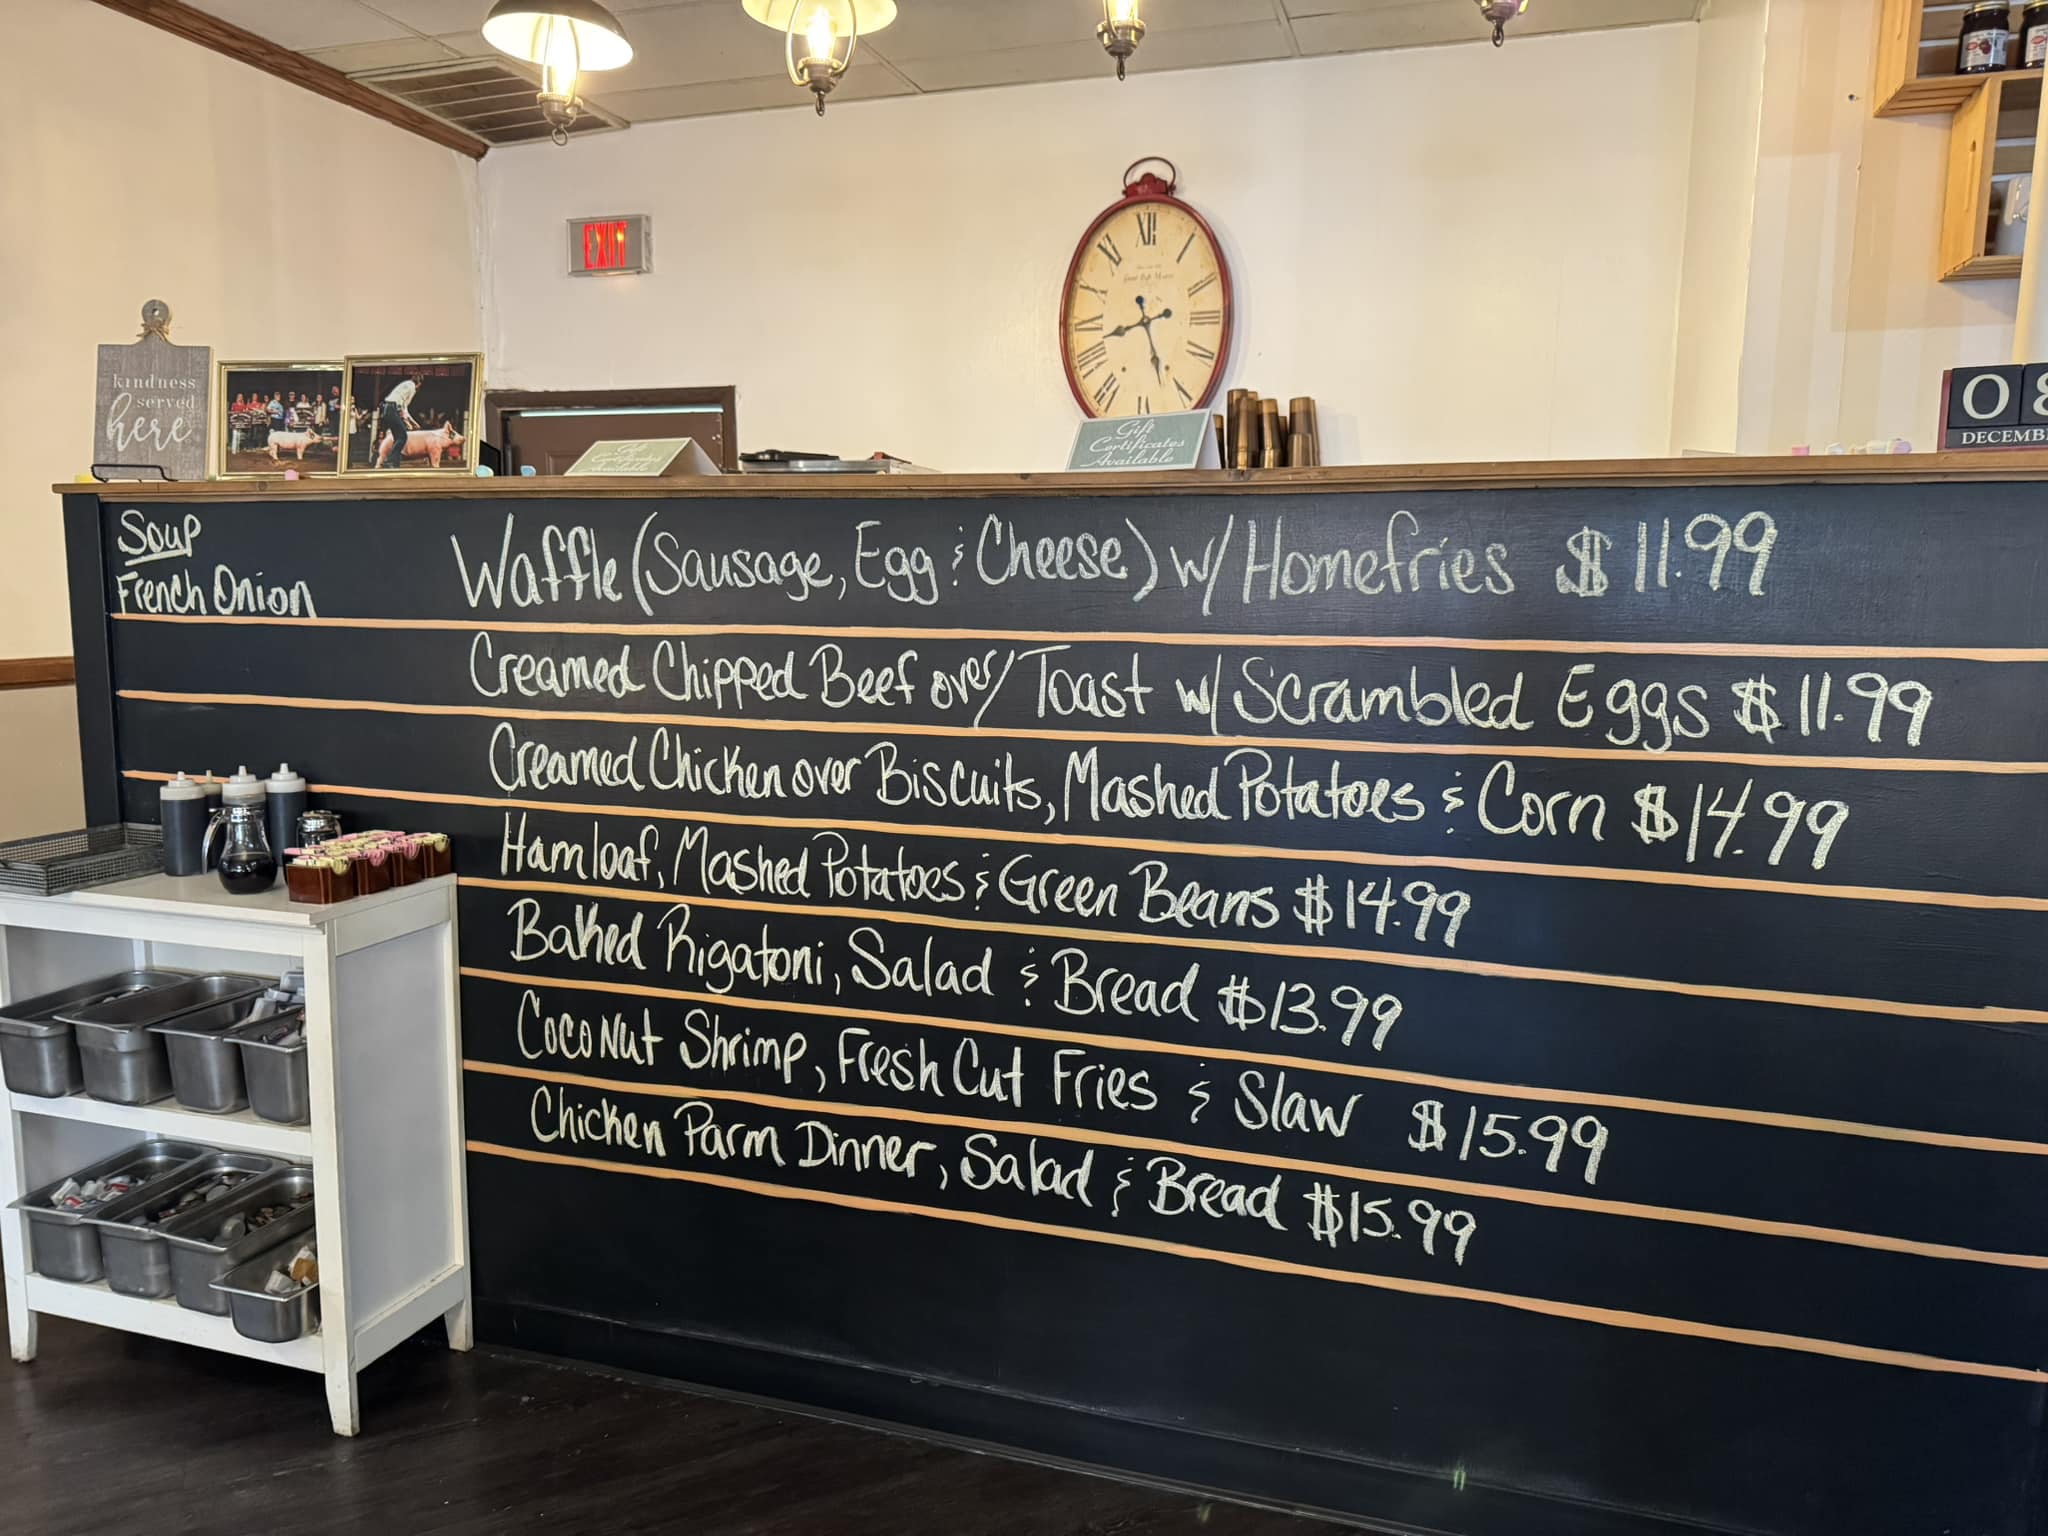 EXIT
XII
kindness
served
here
Gift
Certificates
Available
Gift
Certificates
Available
08
DECEMB
Soup
French Onion
Waffle (Sausage, Egg & Cheese) w/ Homefries $11.99
Creamed Chipped Beef over/ Toast w/ Scrambled Eggs $11.99
Creamed Chicken over Biscuits, Mashed Potatoes & Corn $14.99
Hamloaf, Mashed Potatoes & Green Beans $14.99
Baked Rigatoni, Salad & Bread $13.99
Coconut Shrimp, Fresh Cut Fries & Slaw $15.99
Chicken Parm Dinner, Salad & Bread $15.99